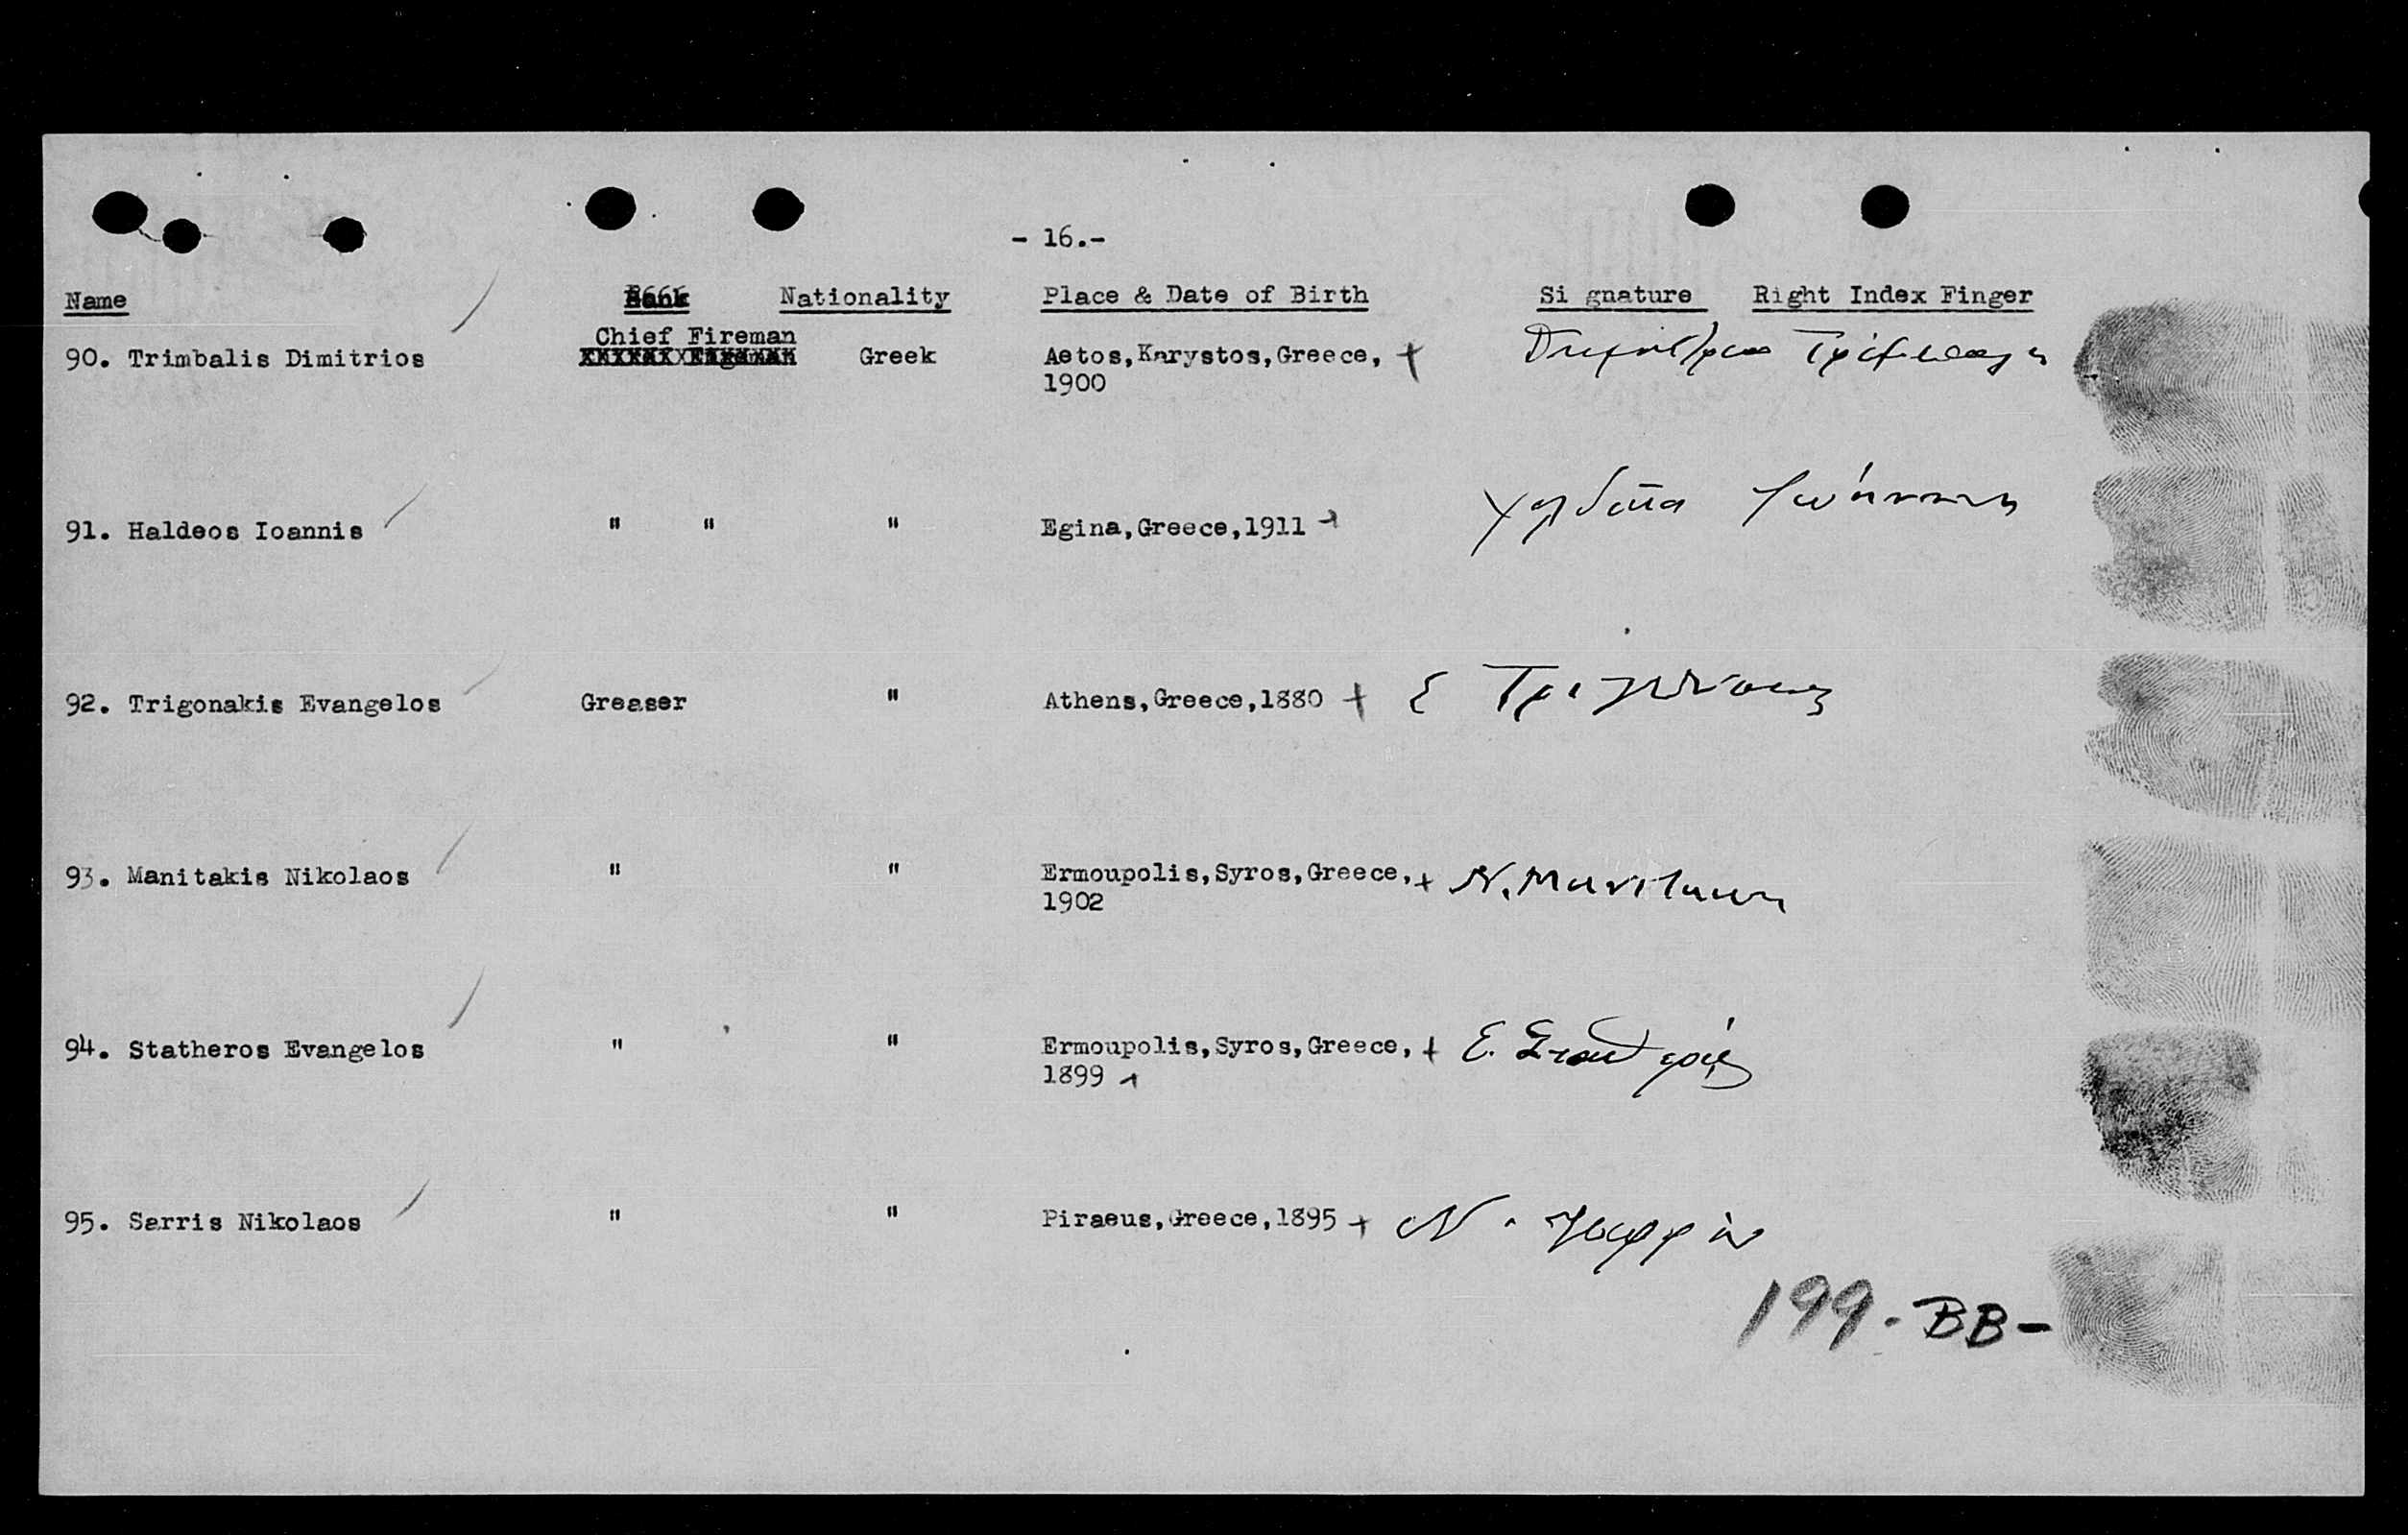 - 16.-
Name Rank Nationality Place & Date of Birth Si gnature Right Index Finger
Chief Fireman
90. Trimbalis Dimitrios Greek Aetos,Karystos,Greece,
1900
91. Haldeos Ioannis " " " Egina,Greece,1911 Ιωάννης
92. Trigonakis Evangelos Greaser " Athens,Greece,1880 Ε Τριγωνακης
93. Manitakis Nikolaos " " Ermoupolis,Syros,Greece, Ν. Μανιτακης
1902
94. Statheros Evangelos " " Ermoupolis,Syros,Greece, Ε. Σταθερός
1899
95. Sarris Nikolaos " " Piraeus,Greece,1895 Ν. Σαρρής
199.-BB-